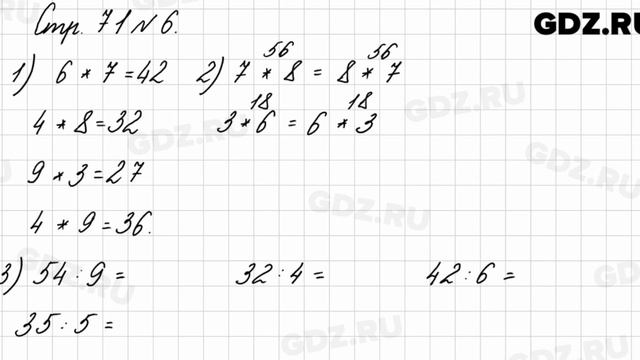 Стр. 71 № 6.
GDZ.RU
1) 6 * 7 = 42
2) 7 * 8 = 8 * 7
56
56
4 * 8 = 32
3 * 6 = 6 * 3
18
18
9 * 3 = 27
4 * 9 = 36.
3) 54 : 9 =
32 : 4 =
42 : 6 =
35 : 5 =
GDZ.RU
GDZ.RU
GDZ.RU
GDZ.RU
GDZ.RU
GDZ.RU
GDZ.RU